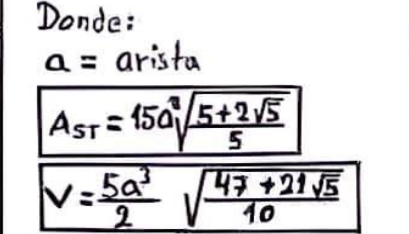 Donde:
a = arista
A_ST = 15a²√((5+2√5)/5)
V = (5a³/2) √((47+21√5)/10)